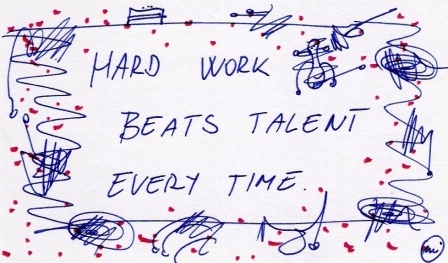 HARD WORK
BEATS TALENT
EVERY TIME.